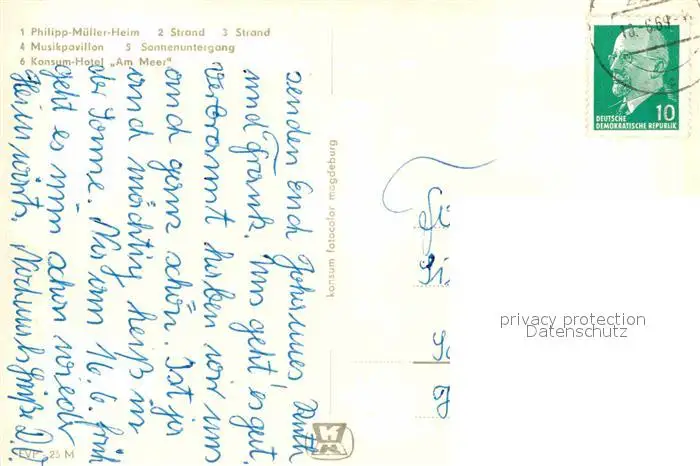 1 Philipp-Müller-Heim 2 Strand 3 Strand
4 Musikpavillon 5 Sonnenuntergang
6 Konsum-Hotel „Am Meer"
senden Euch Johannes Ruth
und Frank. Uns geht es gut.
Verbrannt haben wir uns
auch ganz schön. Ist ja
auch mächtig heiß in
der Sonne. Nur am 16.6. früh
geht es nun schon wieder
Heimwärts. Nochmals Grüße D.O.
EVP -25 M
konsum fotocolor magdeburg
10
DEUTSCHE
DEMOKRATISCHE REPUBLIK
privacy protection
Datenschutz